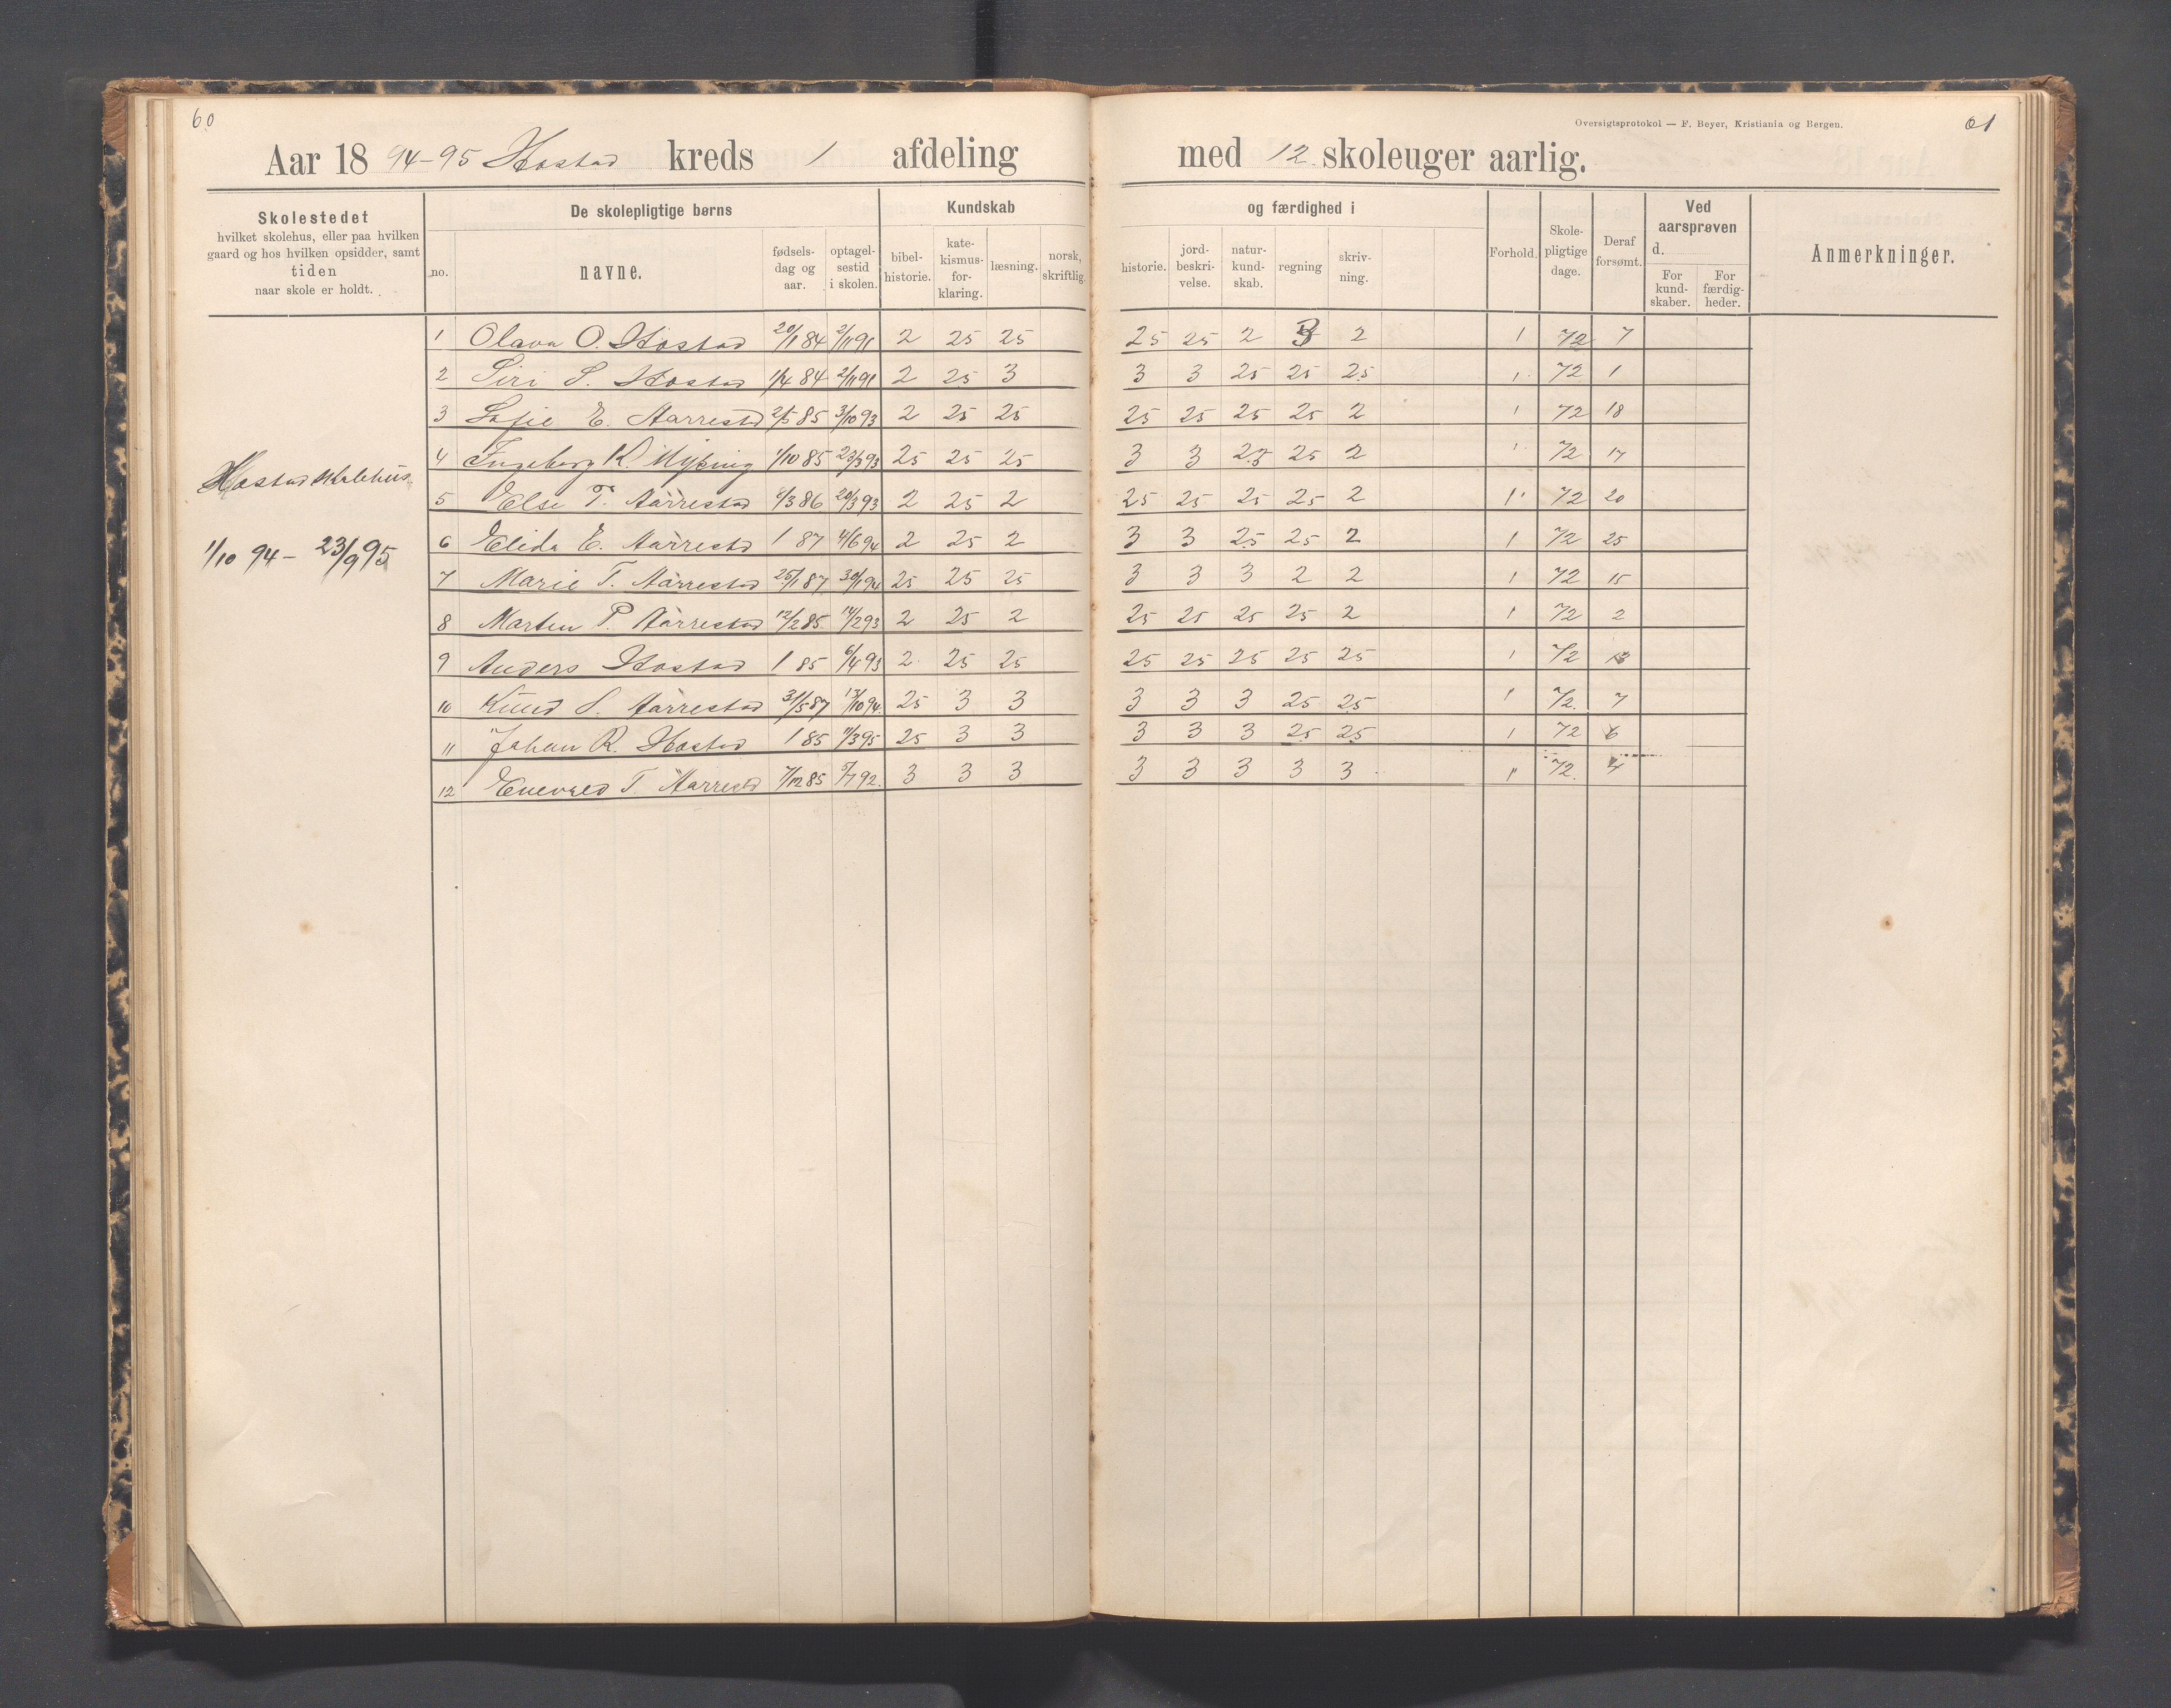 60
Oversigtsprotokol — F. Beyer, Kristiania og Bergen.
61
Aar 18 94-95 Hostad kreds 1 afdeling med 12 skoleuger aarlig.
Skolestedet
hvilket skolehus, eller paa hvilken
gaard og hos hvilken opsidder, samt
tiden
naar skole er holdt.
De skolepligtige børns
no.
navne.
fødsels-
dag og
aar.
optagel-
sestid
i skolen.
Kundskab
bibel-
historie.
kate-
kismus-
for-
klaring.
læsning.
norsk,
skriftlig.
og færdighed i
historie.
jord-
beskri-
velse.
natur-
kund-
skab.
regning
skriv-
ning.
Forhold.
Skole-
pligtige
dage.
Deraf
forsømt.
Ved
aarsprøven
d.
For
kund-
skaber.
For
færdig-
heder.
Anmerkninger.
Hostad skolehus
1/10 94 - 23/9 95
1 Olava O. Hostad 20/1 84 2/11 91 2 25 25 25 25 2 2 1 72 7
2 Siri S. Hostad 1/4 84 2/11 91 2 25 3 3 3 25 25 25 1 72 1
3 Sofie E. Aarrestad 2/5 85 3/10 93 2 25 25 25 25 25 25 2 1 72 18
4 Ingeborg K. 1/10 85 23/3 93 25 25 25 3 3 25 25 2 1 72 17
5 Else T. Aarrestad /3 86 20/3 93 2 25 2 25 25 25 25 2 1 72 20
6 Elida E. Aarrestd / 87 4/6 94 2 25 2 3 3 25 25 2 1 72 25
7 Marie T. Aarrestad 25/1 87 30/1 94 25 25 25 3 3 3 2 2 1 72 15
8 Marten P. Aarrestad 12/2 85 14/2 93 2 25 2 25 25 25 25 2 1 72 2
9 Anders Hostad / 85 6/4 93 2 25 25 25 25 25 25 25 1 72
10 Knud S. Aarrestad 31/5 87 13/10 94. 25 3 3 3 3 3 25 25 1 72. 7
11 Johan R. Hostad / 85 11/3 95 25 3 3 3 3 3 25 25 1 72 6
12 Enevald T. Aarrestd 7/12 85 5/7 92. 3 3 3 3 3 3 3 3 1 72. 4